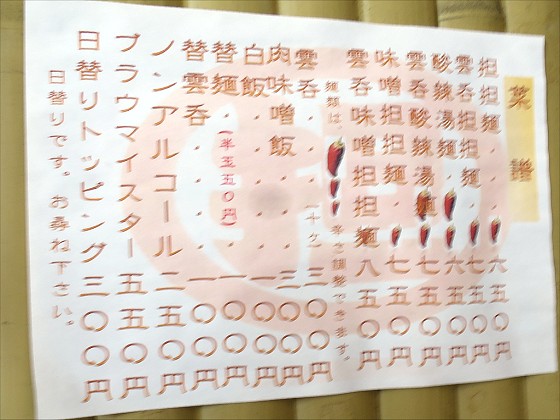 菜譜
担担麺 六五〇円
雲呑担担麺 七五〇円
酸辣湯麺 六五〇円
雲呑酸辣湯麺 七五〇円
味噌担担麺 七五〇円
雲呑味噌担担麺 八五〇円
麺類は、辛さ調整できます。
雲呑・・・ 三〇〇円
肉味噌飯・・・ 三〇〇円
白飯・・・・・ 一〇〇円
替麺・・・・・ 一〇〇円
(半玉五〇円)
替雲呑・・・・ 一〇〇円
ノンアルコール 二五〇円
ブラウマイスター 五五〇円
日替りトッピング 三〇〇円
日替りです。お尋ね下さい。